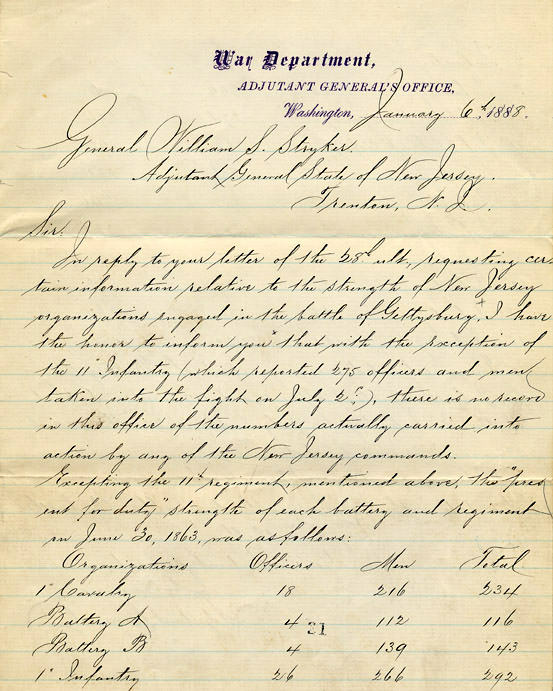 War Department,
ADJUTANT GENERAL'S OFFICE,
Washington, January 6th, 1888.
General William S. Stryker.
Adjutant General State of New Jersey.
Trenton, N. J.
Sir:
In reply to your letter of the 28th ult., requesting cer-
tain information relative to the strength of New Jersey
organizations engaged in the battle of Gettysburg, I have
the honor to inform you that with the exception of
the 11" Infantry (which reported 275 officers and men
taken into the fight on July 2d), there is no record
in this office of the numbers actually carried into
action by any of the New Jersey commands.
Excepting the 11th regiment, mentioned above, the "pres-
ent for duty" strength of each battery and regiment
on June 30, 1863, was as follows:
Organizations Officers Men Total
1" Cavalry 18 216 234
Battery A 4 112 116
31
Battery B 4 139 143
1" Infantry 26 266 292